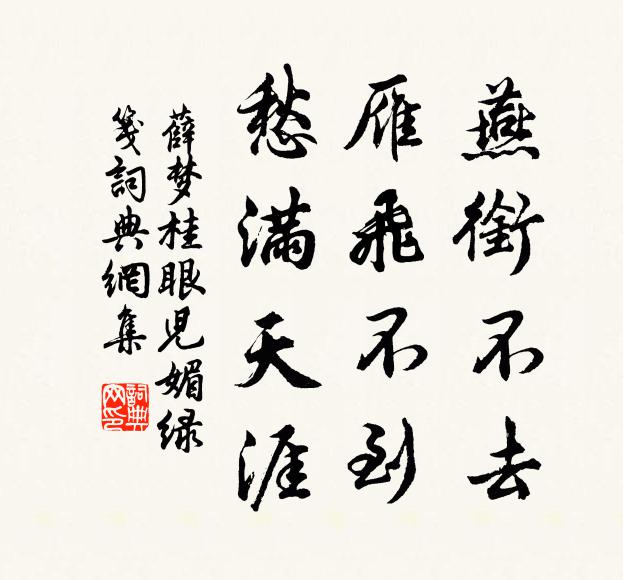 燕銜不去
雁飛不到
愁滿天涯
薛梦桂眼児媚绿
箋詞典網集
詞典網印